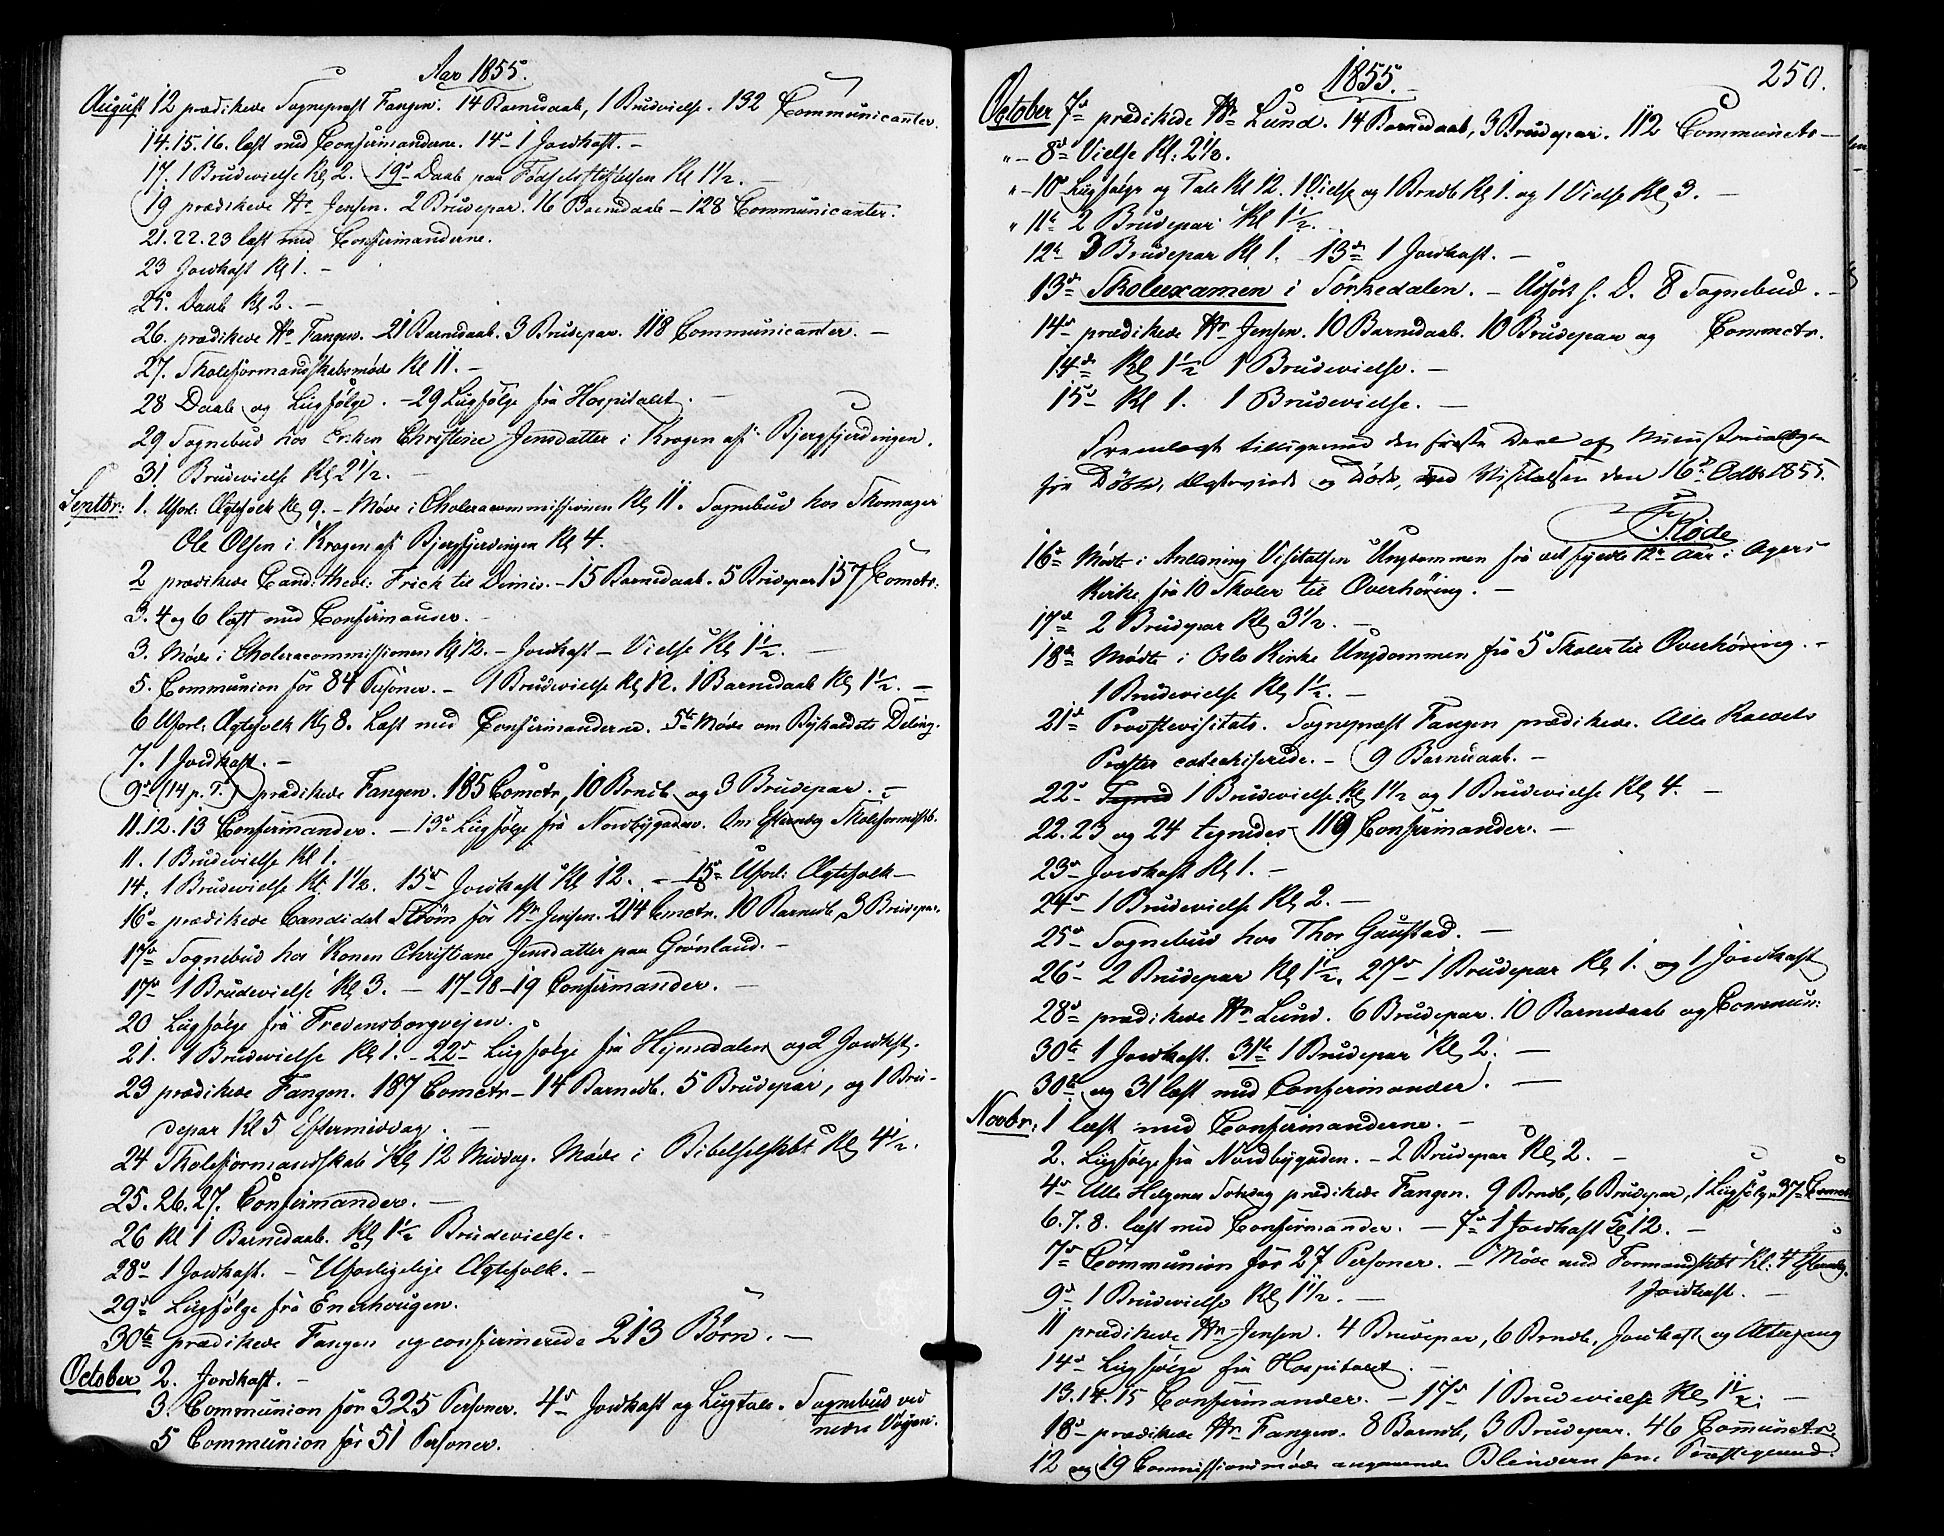 Aar 1855.
August 12 prædikede Sognepræst Fangen. 14 Barnedaab, 1 Brudevielse. 132 Communicanter.
14. 15. 16. læst med Confirmanderne. 14d 1 Jordkast. –
17. 1 Brudevielse Kl 2. 19d Daab paa Fødselsstiftelsen Kl 1 1/2. –
19 prædikede Hr Jensen. 2 Brudepar. 16 Barnedaab – 128 Communicanter.
21. 22. 23 læst med Confirmanderne.
23 Jordkast Kl 1. –
25. Daab Kl 2. –
26. prædikede Hr Fangen. 21 Barnedaab. 3 Brudepar. 118 Communicanter. –
27. Skoleformandskabsmøde Kl 11. –
28 Daab og Liigfølge. – 29 Liigfølge fra Hospitalet. –
29 Sognebud hos Enken Christine Jensdatter i Krogen af Bjergfjerdingen.
31 Brudevielse Kl 2 1/2. –
Septbr: 1. Uforl. Ægtefolk Kl 9. – Møde i Choleracommissionen Kl 11. Sognebud hos Skomager
Ole Olsen i Krogen af Bjergfjerdingen Kl 4.
2 prædikede Cand: theol: Frick til Dimis. – 15 Barnedaab. 5 Brudepar 157 Comctr:
3. 4 og 6 læst med Confirmander. –
3. Møde i Choleracommissionen Kl 12. – Jordkast – Vielse Kl 1 1/2. –
5. Communion for 84 Personer. – 1 Brudevielse Kl 12. 1 Barnedaab Kl 1 1/2. –
6 Uforl: Ægtefolk Kl 8. Læst med Confirmanderne. 5te Møde om Byskaldets Deling.
7. 1 Jordkast. –
9d (14 p. T.) prædikede Fangen. 185 Comctr, 10 Brndb. og 3 Brudepar. –
11. 12. 13 Confirmander. – 13d Liigfølge fra Nordbygaden. Om Eftermdg Skoleformdskb.
11. 1 Brudevielse Kl 1.
14. 1 Brudevielse Kl 1 1/2. 15d Jordkast Kl 12. – 15d Uforl: Ægtefolk –
16d prædikede Candidat Strøm for Hr Jensen. 214 Cmctr. 10 Barnedb, 3 Brudepar.
17d Sognebud hos Konen Christiane Jensdatter paa Grønland. –
17d 1 Brudevielse Kl 3. – 17–18–19 Confirmander. –
20 Liigfølge fra Fredensborgveien.
21. 1 Brudevielse Kl 1. – 22d Liigfølge fra Hjemdalen og 2 Jordkst.
23 prædikede Fangen. 187 Comctr – 14 Barnedb. 5 Brudepar, og 1 Bru-
depar Kl 5 Eftermiddag. –
24 Skoleformandskab Kl 12 Middag. Møde i Bibelselskbt Kl 4 1/2.
25. 26. 27. Confirmander. –
26 Kl 1 Barnedaab. Kl 1 1/2 Brudevielse. –
28d 1 Jordkast. – Uforligelige Ægtefolk. –
29d Liigfølge fra Enerhougen.
30te prædikede Fangen og confirmerede 213 Børn. –
October 2. Jordkast. –
3. Communion for 325 Personer. 4d Jordkast og Liigtale. Sognebud ved
nedre Vøien.
5 Communion for 51 Personer.
250.
1855. –
October 7d prædikede Hr Lund. 14 Barnedaab, 3 Brudepar. 112 Communctr –
" – 8d Vielse Kl: 2 1/2.
" – 10d Liigfølge og Tale Kl 12. 1 Vielse og 1 Brndb Kl 1. og 1 Vielse Kl 3. –
" 11te 2 Brudepar Kl 1 1/2.
12te 3 Brudepar Kl 1. 13de 1 Jordkast. –
13de Skoleexamen i Sørkedalen. – Udført s. D. 8 Sognebud. –
14d prædikede Hr Jensen. 10 Barnedaab. 10 Brudepar og Commctr.
14de Kl 1 1/2 1 Brudevielse. –
15d Kl 1. 1 Brudevielse. –
Fremlagt tilligemed den første Deel af Ministerialbogen
for Døbte, Ægteviede og Døde, ved Visitatsen den 16de Octbr 1855.
Røde
16d Mødte i Anledning Visitatsen Ungdommen fra det fyldte 12te Aar i Agers
Kirke fra 10 Skoler til Overhøring. –
17de 2 Brudepar Kl 3 1/2. –
18de Mødte i Oslo Kirke Ungdommen fra 5 Skoler til Overhøring. –
1 Brudevielse Kl 1 1/2. –
21de Provstevisitats. Sognepræst Fangen prædikede. Alle Kaldets
Præster catechiserede. – 9 Barnedaab. –
22d 1 Brudevielse Kl 1 1/2 og 1 Brudevielse Kl 4. –
22. 23 og 24 tegnedes 119 Confirmander. –
23d Jordkast Kl 1. –
24d 1 Brudevielse Kl 2. –
25d Sognebud hos Thor Gaustad. –
26d 2 Brudepar Kl 1 1/2. 27d 1 Brudepar Kl 1. og 1 Jordkast
28d prædikede Hr Lund. 6 Brudepar. 10 Barnedaab og Commun:
30te 1 Jordkast. 31te 1 Brudepar Kl 2. –
30te og 31 læst med Confirmander. –
Novbr: 1 læst med Confirmanderne. –
2. Liigfølge fra Nordbygaden. – 2 Brudepar Kl 2. –
4d Alle Helgenes Søndag prædikede Fangen. 9 Brndb, 6 Brudepar, 1 Liigfølge 37 Comctr
6. 7. 8. læst med Confirmander. – 7d 1 Jordkast Kl 12. –
7d Communion for 27 Personer. – Møde med Formandskbt Kl: 4 Eftermdg.
9d 1 Brudevielse Kl 1 1/2. – 1 Jordkast. –
11 prædikede Hr Jensen. 4 Brudepar, 6 Brndb, Jordkast og Altergang
14d Liigfølge fra Hospitalet. –
13. 14. 15 Confirmander. – 17d 1 Brudevielse Kl 1 1/2. –
18d prædikede Hr Fangen. 8 Barndb, 3 Brudepar. 46 Communctr.
12 og 19 Commissionsmøde angaaende Blindern som Præstegaard.